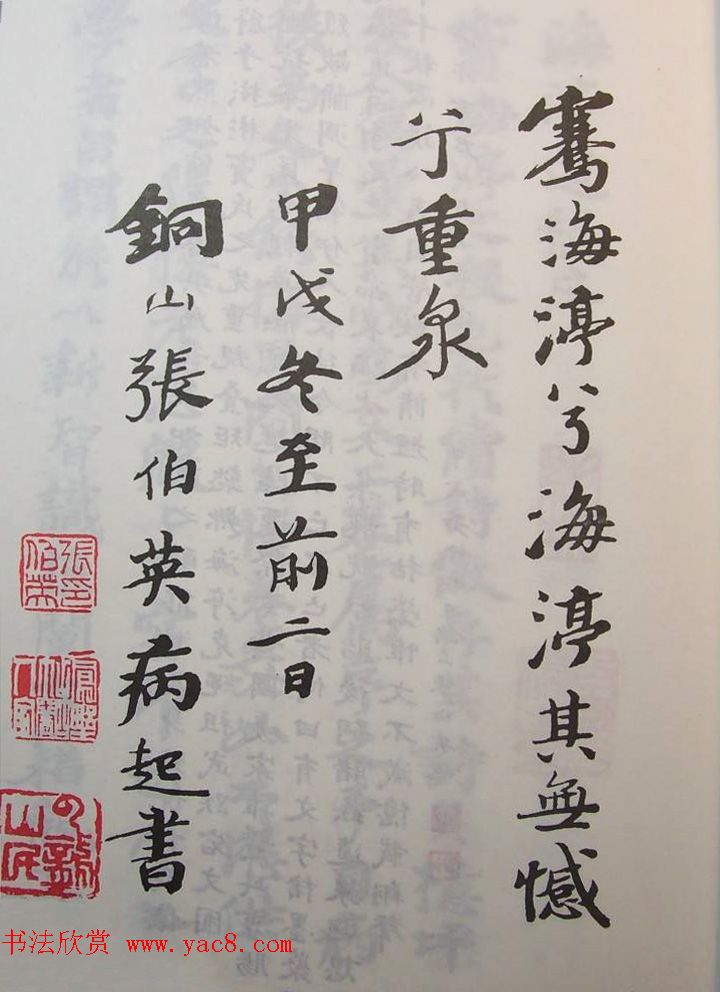 騫海渟兮海渟其無憾
于重泉
甲戌冬至前二日
銅山張伯英病起書
張伯英印
云龍山民
书法欣赏 www.yac8.com